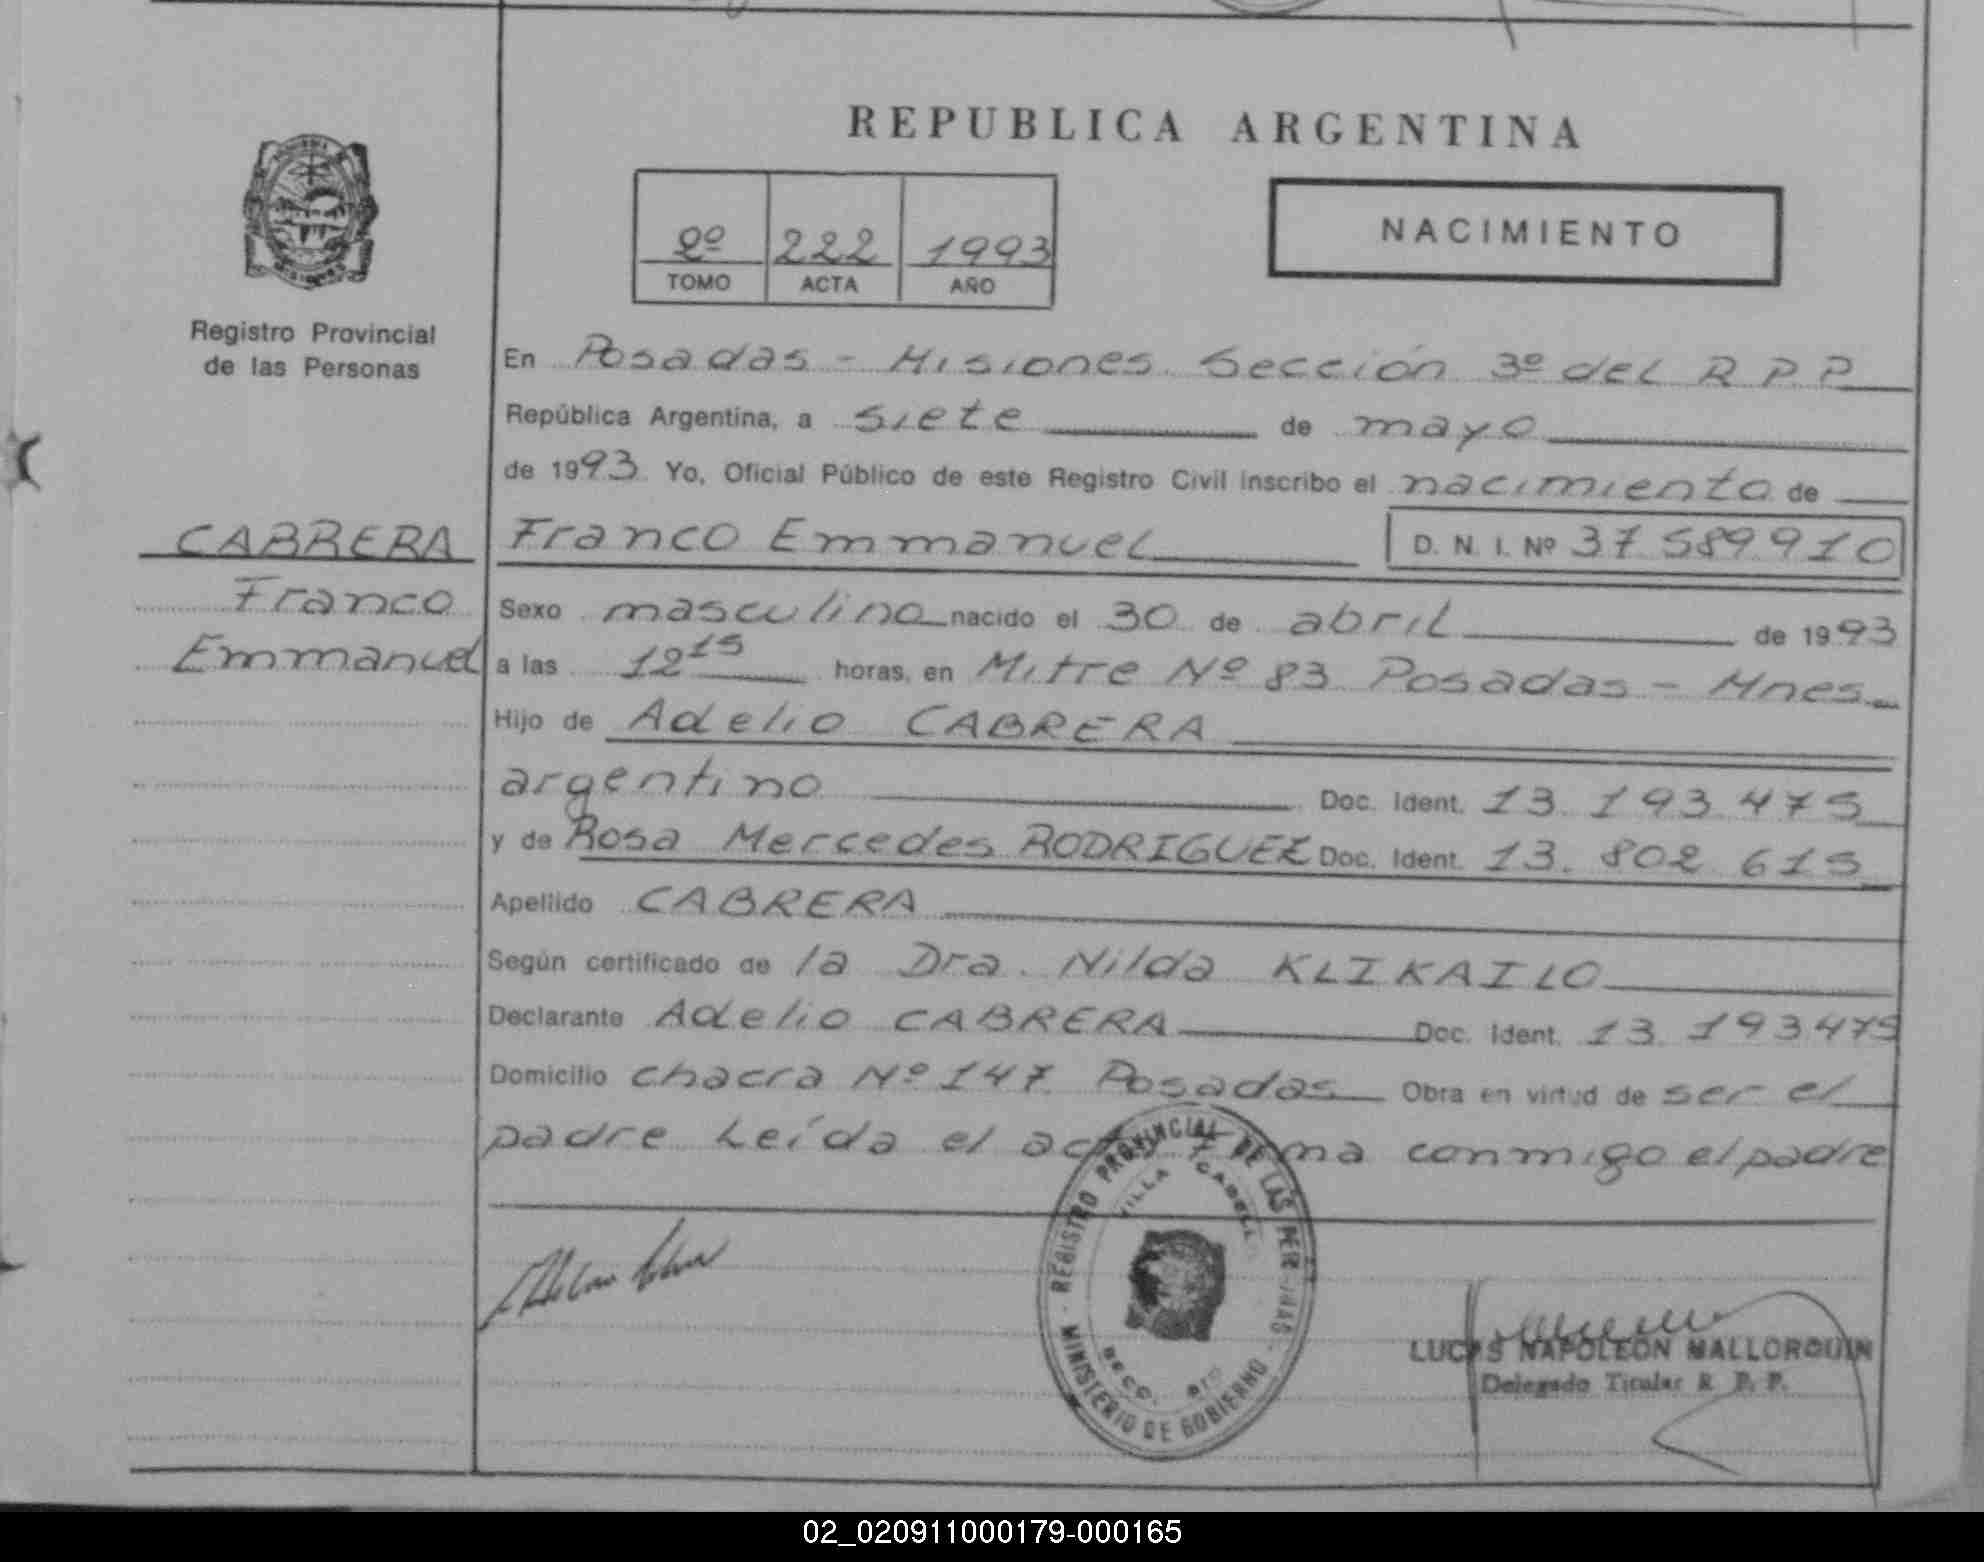 REPUBLICA ARGENTINA
2º 222 1993
TOMO ACTA AÑO
NACIMIENTO
Registro Provincial
de las Personas
CABRERA
Franco
Emmanuel
En Posadas - Misiones. Sección 3º del R P P
República Argentina, a siete de mayo
de 1993. Yo, Oficial Público de este Registro Civil inscribo el nacimiento de
Franco Emmanuel D. N. I. Nº 37 589910
Sexo masculino nacido el 30 de abril de 1993
a las 12 15 horas, en Mitre Nº 83 Posadas - Mnes
Hijo de Adelio CABRERA
argentino Doc. Ident. 13.193.475
y de Rosa Mercedes RODRIGUEZ Doc. Ident. 13.802 615
Apellido CABRERA
Según certificado de la Dra. Nilda KLIKAILO
Declarante Adelio CABRERA Doc. Ident. 13.193475
Domicilio chacra Nº 147. Posadas Obra en virtud de ser el
padre Leída el acta firma conmigo el padre
REGISTRO PROVINCIAL DE LAS PERSONAS
VILLA CABELL
MINISTERIO DE GOBIERNO
LUCAS NAPOLEON MALLORQUIN
Delegado Titular R. P. P.
02_020911000179-000165